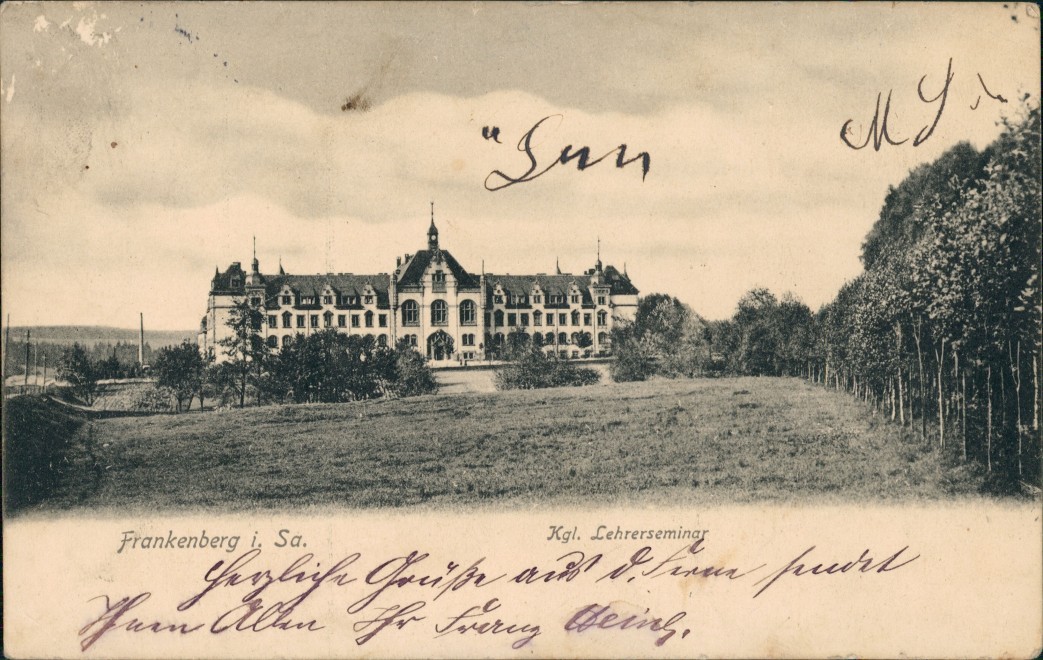 Frankenberg i. Sa. Kgl. Lehrerseminar
Herzliche Grüße aus d. Ferne sendet
Ihnen Allen Ihr Franz